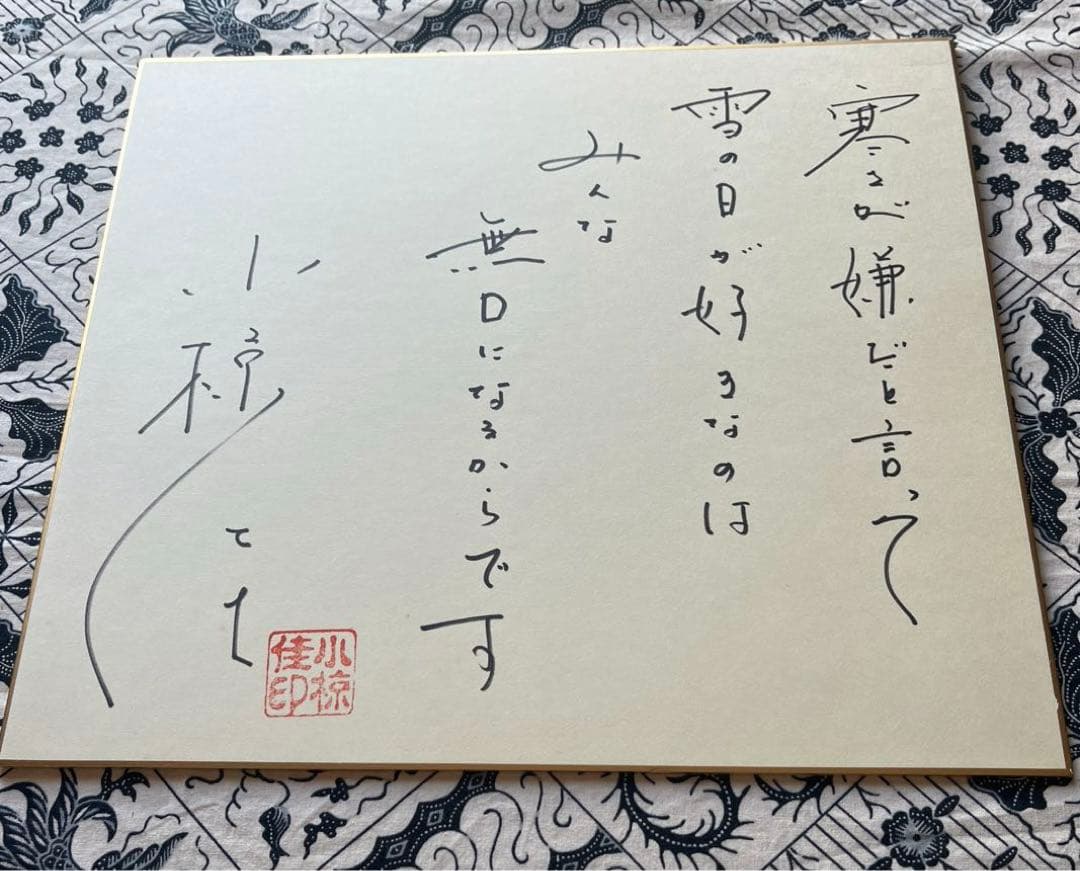 寒さが嫌だと言って
雪の日が好きなのは
みんな
無口になるからです
小椋
小椋
佳印